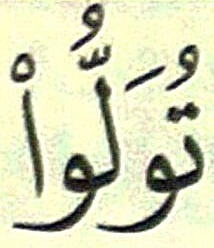 تُوَلُّواْ